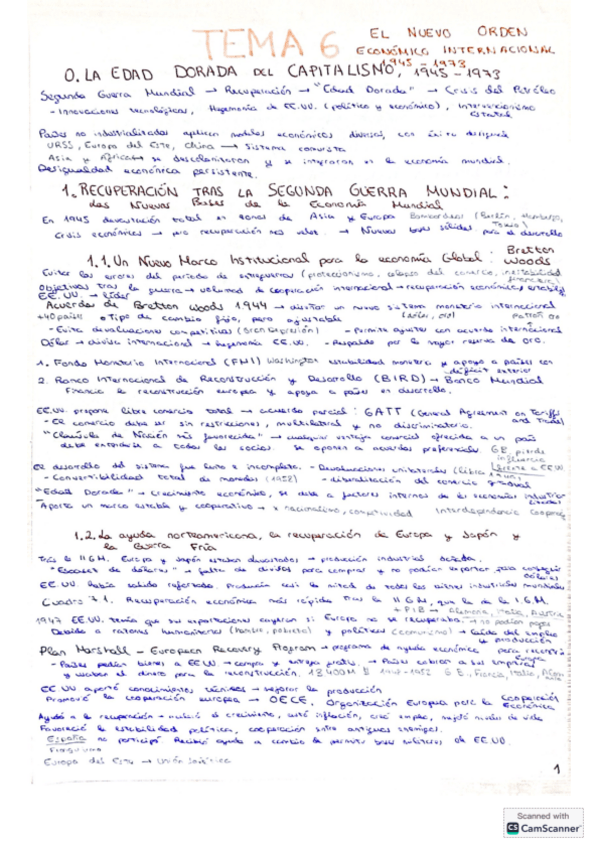 TEMA 6 EL NUEVO ORDEN
ECONÓMICO INTERNACIONAL
1945 - 1973
0. LA EDAD DORADA DEL CAPITALISMO, 1945 - 1973
Segunda Guerra Mundial → Recuperación → "Edad Dorada" → Crisis del Petróleo
- Innovaciones tecnológicas, Hegemonía de EE.UU. (político y económico), Intervencionismo
estatal
Países no industrializados aplican modelos económicos diversos, con éxito desigual
URSS, Europa del Este, China → Sistema comunista
Asia y África se descolonizaron y se integraron en la economía mundial.
Desigualdad económica persistente.
1. RECUPERACIÓN TRAS LA SEGUNDA GUERRA MUNDIAL:
Las Nuevas Bases de la Economía Mundial
En 1945 devastación total en zonas de Asia y Europa Bombardeos (Berlín, Hamburgo,
Tokio)
Crisis económicas → pero recuperación más veloz. → Nuevas bases sólidas para el desarrollo
1.1. Un Nuevo Marco Institucional para la economía Global: Bretton
Woods
Evitar los errores del periodo de entreguerras (proteccionismo, colapso del comercio, inestabilidad
financiera)
Objetivos tras la guerra → volumen de cooperación internacional → recuperación económica y estabilidad
EE.UU. → líder
Acuerdos de Bretton Woods 1944 → diseñar un nuevo sistema monetario internacional
+40 países o Tipo de cambio fijo, pero ajustable (dólar, oro) Patrón oro
- Evita devaluaciones competitivas (Gran Depresión) - Permite ajustes con acuerdo internacional
Dólar → divisa internacional → hegemonía EE.UU. - Respaldo por la mayor reserva de oro.
1. Fondo Monetario Internacional (FMI) Washington estabilidad monetaria y apoyo a países con
déficit exterior
2. Banco Internacional de Reconstrucción y Desarrollo (BIRD) → Banco Mundial
Financia la reconstrucción europea y apoya a países en desarrollo.
EE.UU. propone libre comercio total → acuerdo parcial: GATT (General Agreement on Tariffs
and Trade)
- El comercio debe ser sin restricciones, multilateral y no discriminatorio.
- "Cláusula de Nación más favorecida" → cualquier ventaja comercial ofrecida a un país
debe extenderse a todos los socios. se oponen a acuerdos preferenciales. GB pierde
influencia
frente a EEUU
El desarrollo del sistema fue lento e incompleto. - Devaluaciones unilaterales (libra
- Convertibilidad total de monedas (1958) - liberalización del comercio gradual
"Edad Dorada" → Crecimiento económico, se debe a factores internos de las economías
Aporta un marco estable y cooperativo → x nacionalismo, competitividad Interdependencia
1.2. La ayuda norteamericana, la recuperación de Europa y Japón y
la Guerra Fría
Tras la II G.M. Europa y Japón estaban devastados → producción industrial
- "Escasez de dólares" → falta de divisas para comprar y no podían exportar para conseguir
dólares
EE.UU. había salido reforzado. Producía casi la mitad de todos los bienes industriales mundiales
Cuadro 7.1. Recuperación económica más rápida tras la II G.M. que la de la I G.M.
+ PIB → Alemania, Italia, Austria
1947 EE.UU. temía que sus exportaciones cayeran si Europa no se recuperaba. → no podían pagar
Debido a razones humanitarias (hambre, pobreza) y políticas (comunismo) → Caída del empleo
y producción
Plan Marshall - European Recovery Program → programa de ayuda económica para
Europa
- Países pedían bienes a EEUU → compra y entrega gratis → Países cobran a sus empresas
y usaban el dinero para la reconstrucción. 13 400M $ G.B., Francia, Italia,
EE UU aportó conocimientos técnicos → mejorar la producción
Promovió la cooperación europea → OECE. Organización Europea para la Cooperación
Económica
Ayudó a la recuperación → el crecimiento, evitó inflación, creó empleo, mejoró nivel de vida
Favoreció la estabilidad política, cooperación entre antiguos enemigos.
España no participó. Recibió ayuda a cambio de permitir bases militares de EE.UU.
Europa del Este → Unión Soviética
1
Scanned with
CS CamScanner